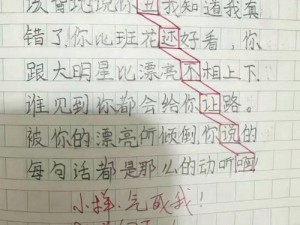 该骂地说你丑我知道我真
错了,你比班花还好看,你
跟大明星比漂亮不相上下,
谁见到你都会给你让路。
被你的漂亮所倾倒,你说的
每句话都是那么的动听啊
小样,气死我!